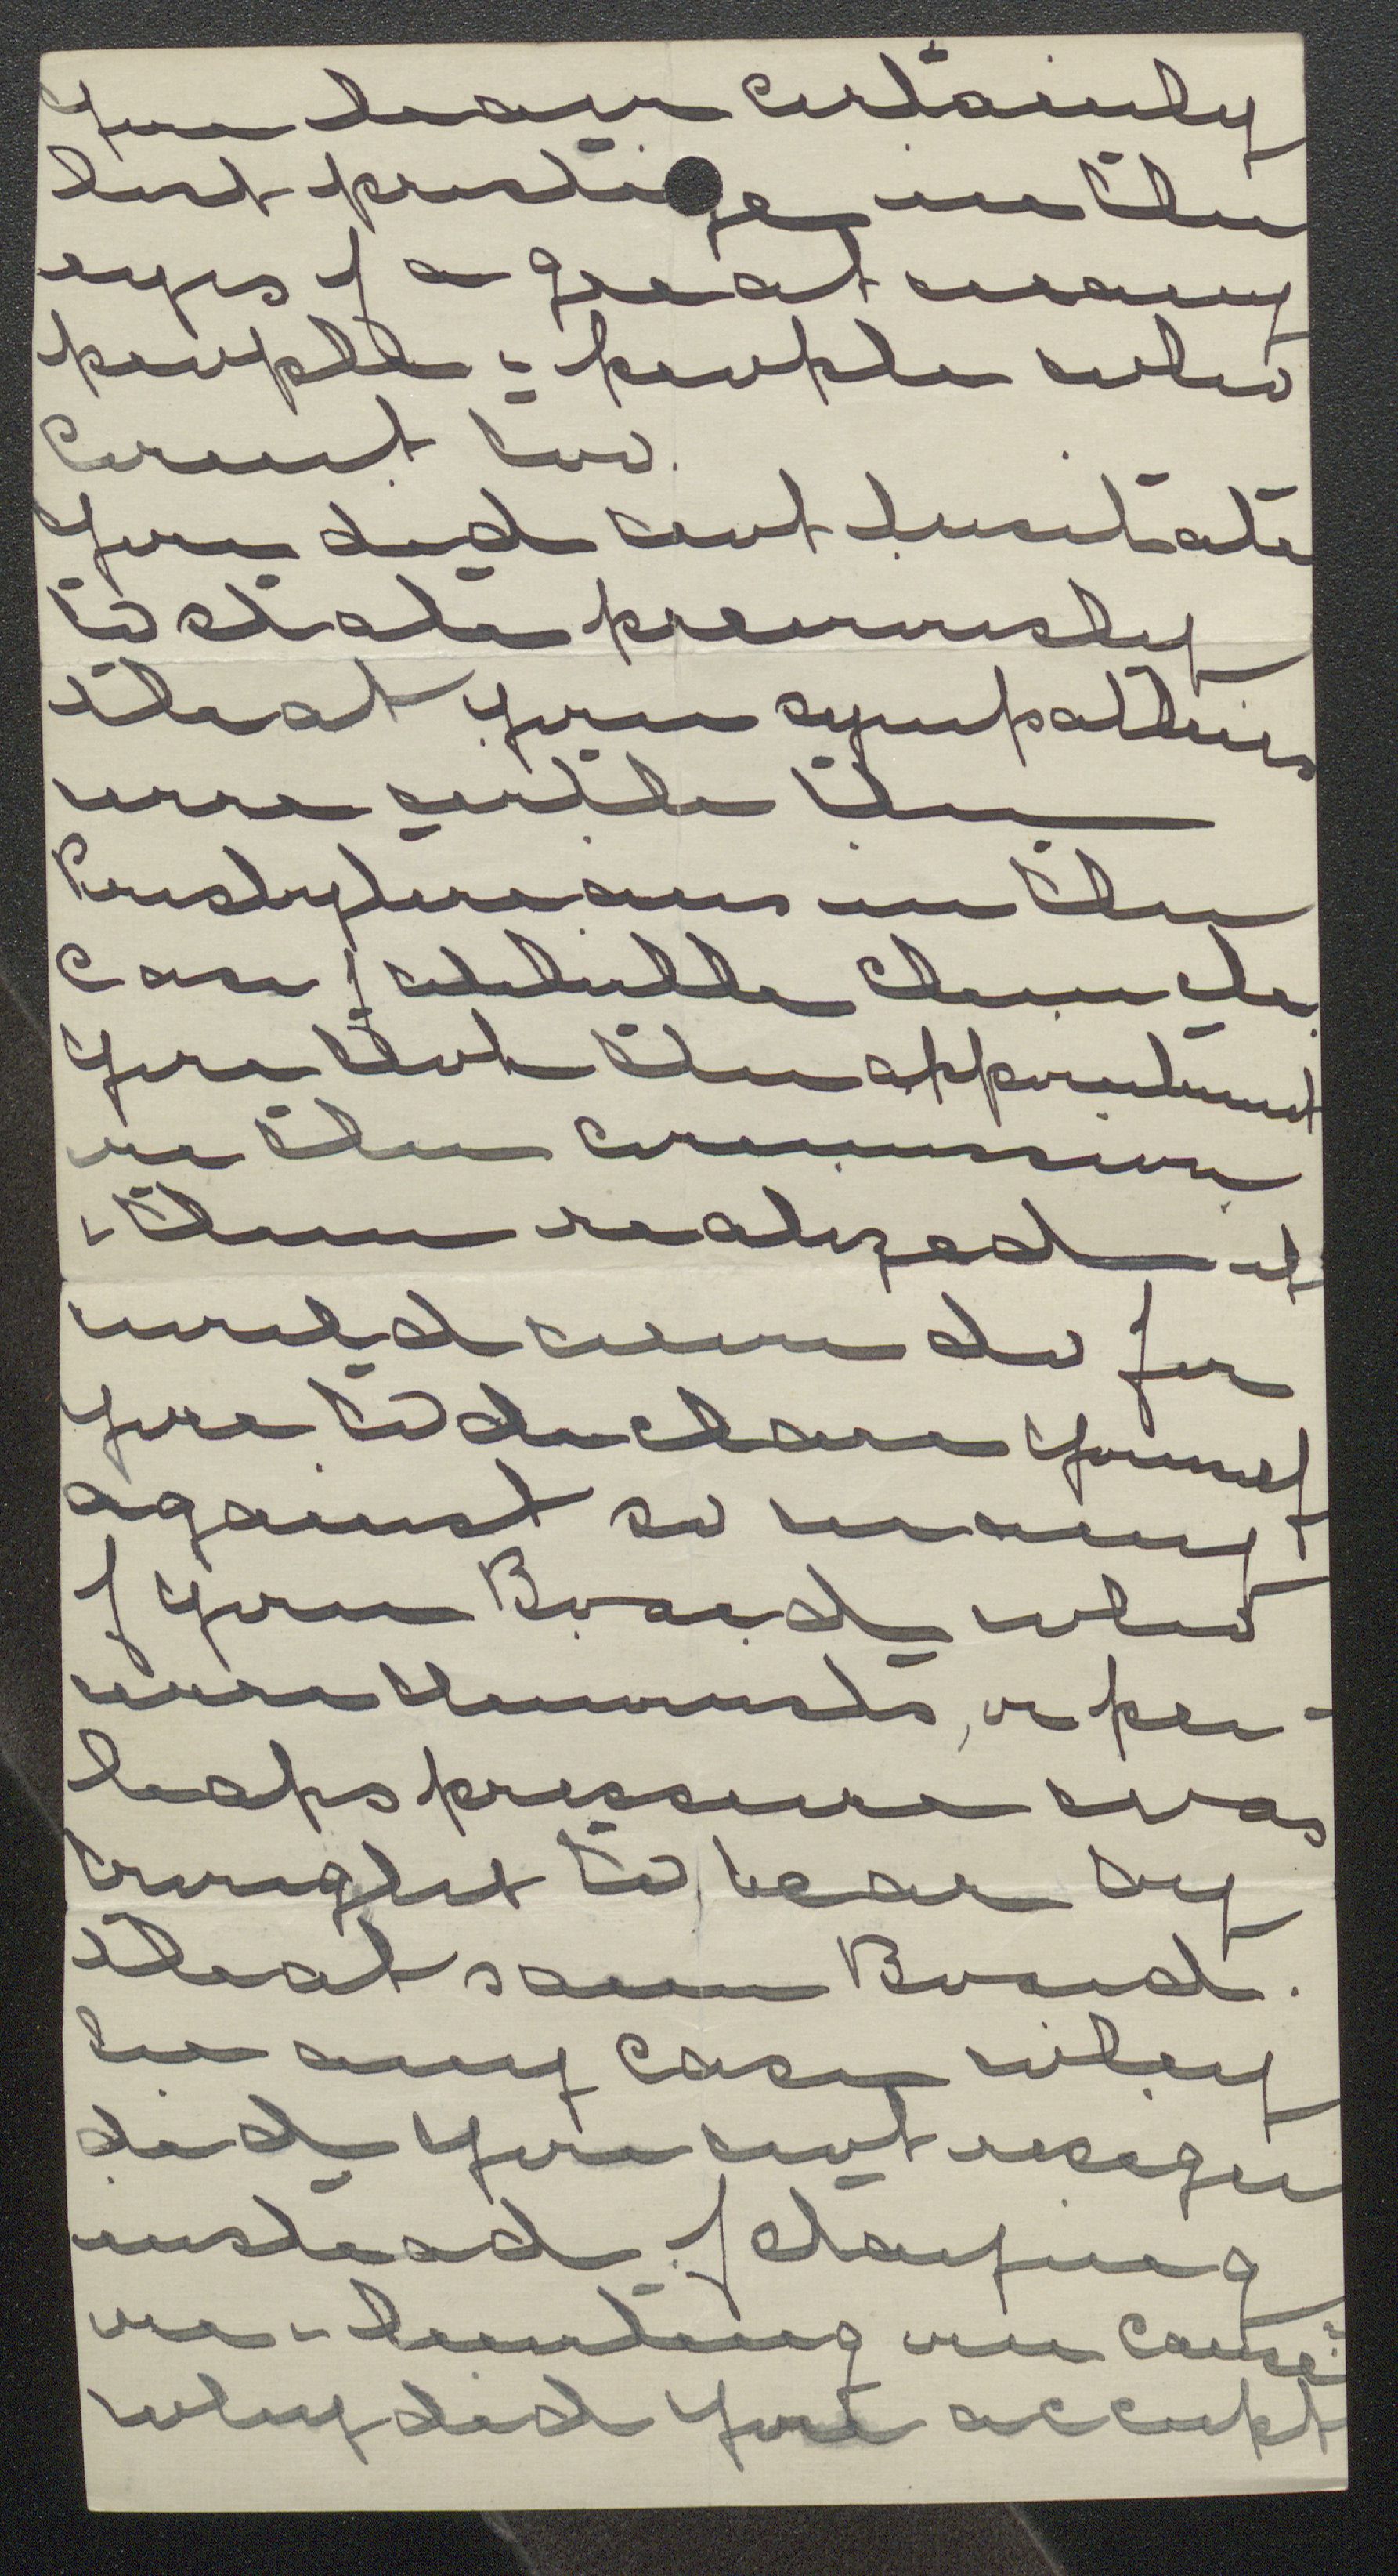 You have certainly
lost prestige in the
eyes of a great many
people - people who
count too.
You did not hesitate
to state previously
that your sympathies
were with the
Presbyterians in the
case of
You took the appointment
on the commission
- then realized it
would never do for
you to declare yourself
against so many
of your Board who
were Unionists, or per-
haps pressure was
brought to bear by
that same Board.
In any case why
did you not resign
instead of staying
on - hunting our cause:
why did you accept